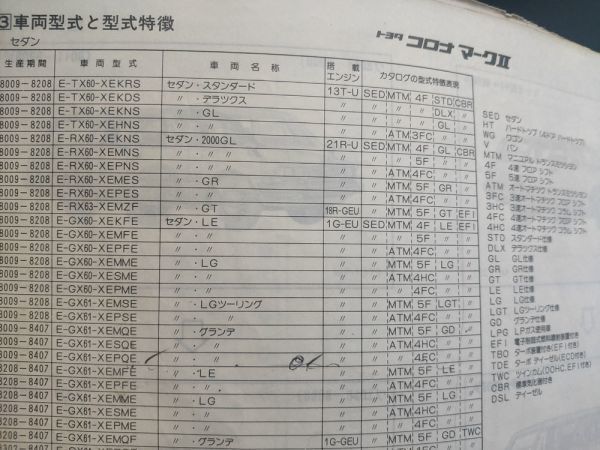 3 車両型式と型式特徴
トヨタ コロナ マークⅡ
セダン
生産期間 車両型式 車両名称 搭載エンジン カタログの型式特徴表現
8009-8208 E-TX60-XEKRS セダン・スタンダード 13T-U SED MTM 4F STD CBR
8009-8208 E-TX60-XEKDS 〃・デラックス 〃 〃 〃 〃 DLX 〃
8009-8208 E-TX60-XEKNS 〃・GL 〃 〃 〃 〃 GL 〃
8009-8208 E-TX60-XEHNS 〃・〃 〃 〃 ATM 3FC 〃 〃
8009-8208 E-RX60-XEKNS セダン・2000GL 21R-U SED MTM 4F GL CBR
8009-8208 E-RX60-XEMNS 〃・〃 〃 〃 〃 5F 〃 〃
8009-8208 E-RX60-XEPNS 〃・〃 〃 〃 ATM 4FC 〃 〃
8009-8208 E-RX60-XEMES 〃・GR 〃 〃 MTM 5F GR 〃
8009-8208 E-RX60-XEPES 〃・〃 〃 〃 ATM 4FC 〃 〃
8009-8208 E-RX63-XEMZF 〃・GT 18R-GEU 〃 MTM 5F GT EFI
8009-8208 E-GX60-XEKFE セダン・LE 1G-EU SED MTM 4F LE EFI
8009-8208 E-GX60-XEMFE 〃・〃 〃 〃 〃 5F 〃 〃
8009-8208 E-GX60-XEPFE 〃・〃 〃 〃 ATM 4FC 〃 〃
8009-8208 E-GX60-XEMME 〃・LG 〃 〃 MTM 5F LG 〃
8009-8208 E-GX60-XESME 〃・〃 〃 〃 ATM 4HC 〃 〃
8009-8208 E-GX60-XEPME 〃・〃 〃 〃 〃 4FC 〃 〃
8009-8208 E-GX61-XEMSE 〃・LGツーリング 〃 〃 MTM 5F LGT 〃
8009-8208 E-GX61-XEPSE 〃・〃 〃 〃 ATM 4FC 〃 〃
8009-8407 E-GX61-XEMQE 〃・グランデ 〃 〃 MTM 5F GD 〃
8009-8407 E-GX61-XESQE 〃・〃 〃 〃 ATM 4HC 〃 〃
E-GX61-XEPQE 〃・〃 〃 〃 〃 4FC 〃 〃
8208-8407 E-GX61-XEMFE 〃・LE 〃 〃 MTM 5F LE 〃
8208-8407 E-GX61-XEPFE 〃・〃 〃 〃 ATM 4FC 〃 〃
8208-8407 E-GX61-XEMME 〃・LG 〃 〃 MTM 5F LG 〃
8208-8407 E-GX61-XESME 〃・〃 〃 〃 ATM 4HC 〃 〃
8208-8407 E-GX61-XEPME 〃・〃 〃 〃 〃 4FC 〃 〃
8208-8407 E-GX61-XEMQF 〃・グランデ 1G-GEU 〃 MTM 5F GD TWC
ATM 4FC
SED セダン
HT ハードトップ (4ドア ハードトップ)
WG ワゴン
V バン
MTM マニュアル トランスミッション
4F 4速 フロア シフト
5F 5速 フロア シフト
ATM オートマチック トランスミッション
3FC 3速オートマチック フロア シフト
3HC 3速オートマチック コラム シフト
4FC 4速オートマチック フロア シフト
4HC 4速オートマチック コラム シフト
STD スタンダード仕様
DLX デラックス仕様
GL GL仕様
GR GR仕様
GT GT仕様
LE LE仕様
LG LG仕様
LGT LGツーリング仕様
GD グランデ仕様
LPG LPガス使用車
EFI 電子制御式燃料噴射装置付き
TBO ターボ装着付き(EFI付き)
TDE ターボ ディーゼル(ECD付き)
TWC ツインカム(DOHC,EFI付き)
CBR 標準気化器付き
DSL ディーゼル